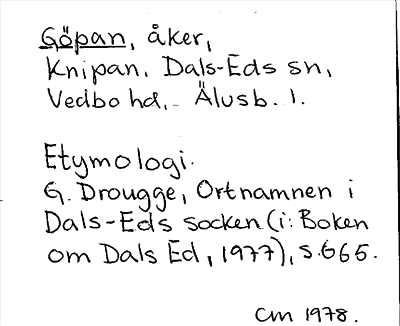 Göpan, åker,
Knipan, Dals-Eds sn,
Vedbo hd, Älvsb. l.
Etymologi.
G. Drougge, Ortnamnen i
Dals-Eds socken (i: Boken
om Dals Ed, 1977), s. 665.
CM 1978.